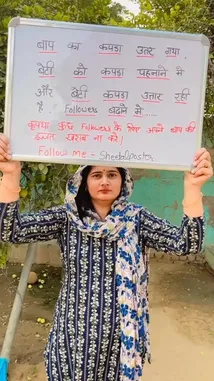 बाप का कपडा उतर गया
बेटी को कपडा पहनाने मे
और बेटी कपडा उतार रही
है Followers बढाने मे.....
कृपया कुछ Followers के लिए अपने बाप की
इज्जत खराब ना करें।
Follow me - Sheetalmaster